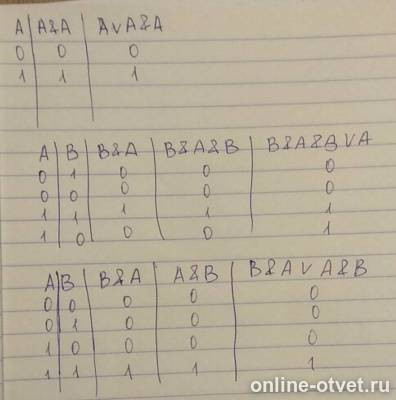 A A&A A∨A&A
0 0 0
1 1 1
A B B&A B&A&B B&A&B∨A
0 1 0 0 0
0 0 0 0 0
1 1 1 1 1
1 0 0 0 1
A B B&A A&B B&A∨A&B
0 0 0 0 0
0 1 0 0 0
1 0 0 0 0
1 1 1 1 1
online-otvet.ru